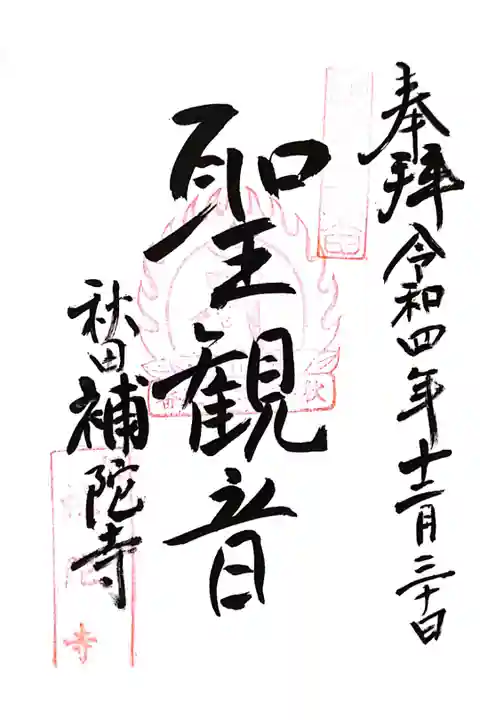 奉拝 令和四年十二月三十日
聖観音
秋田補陀寺